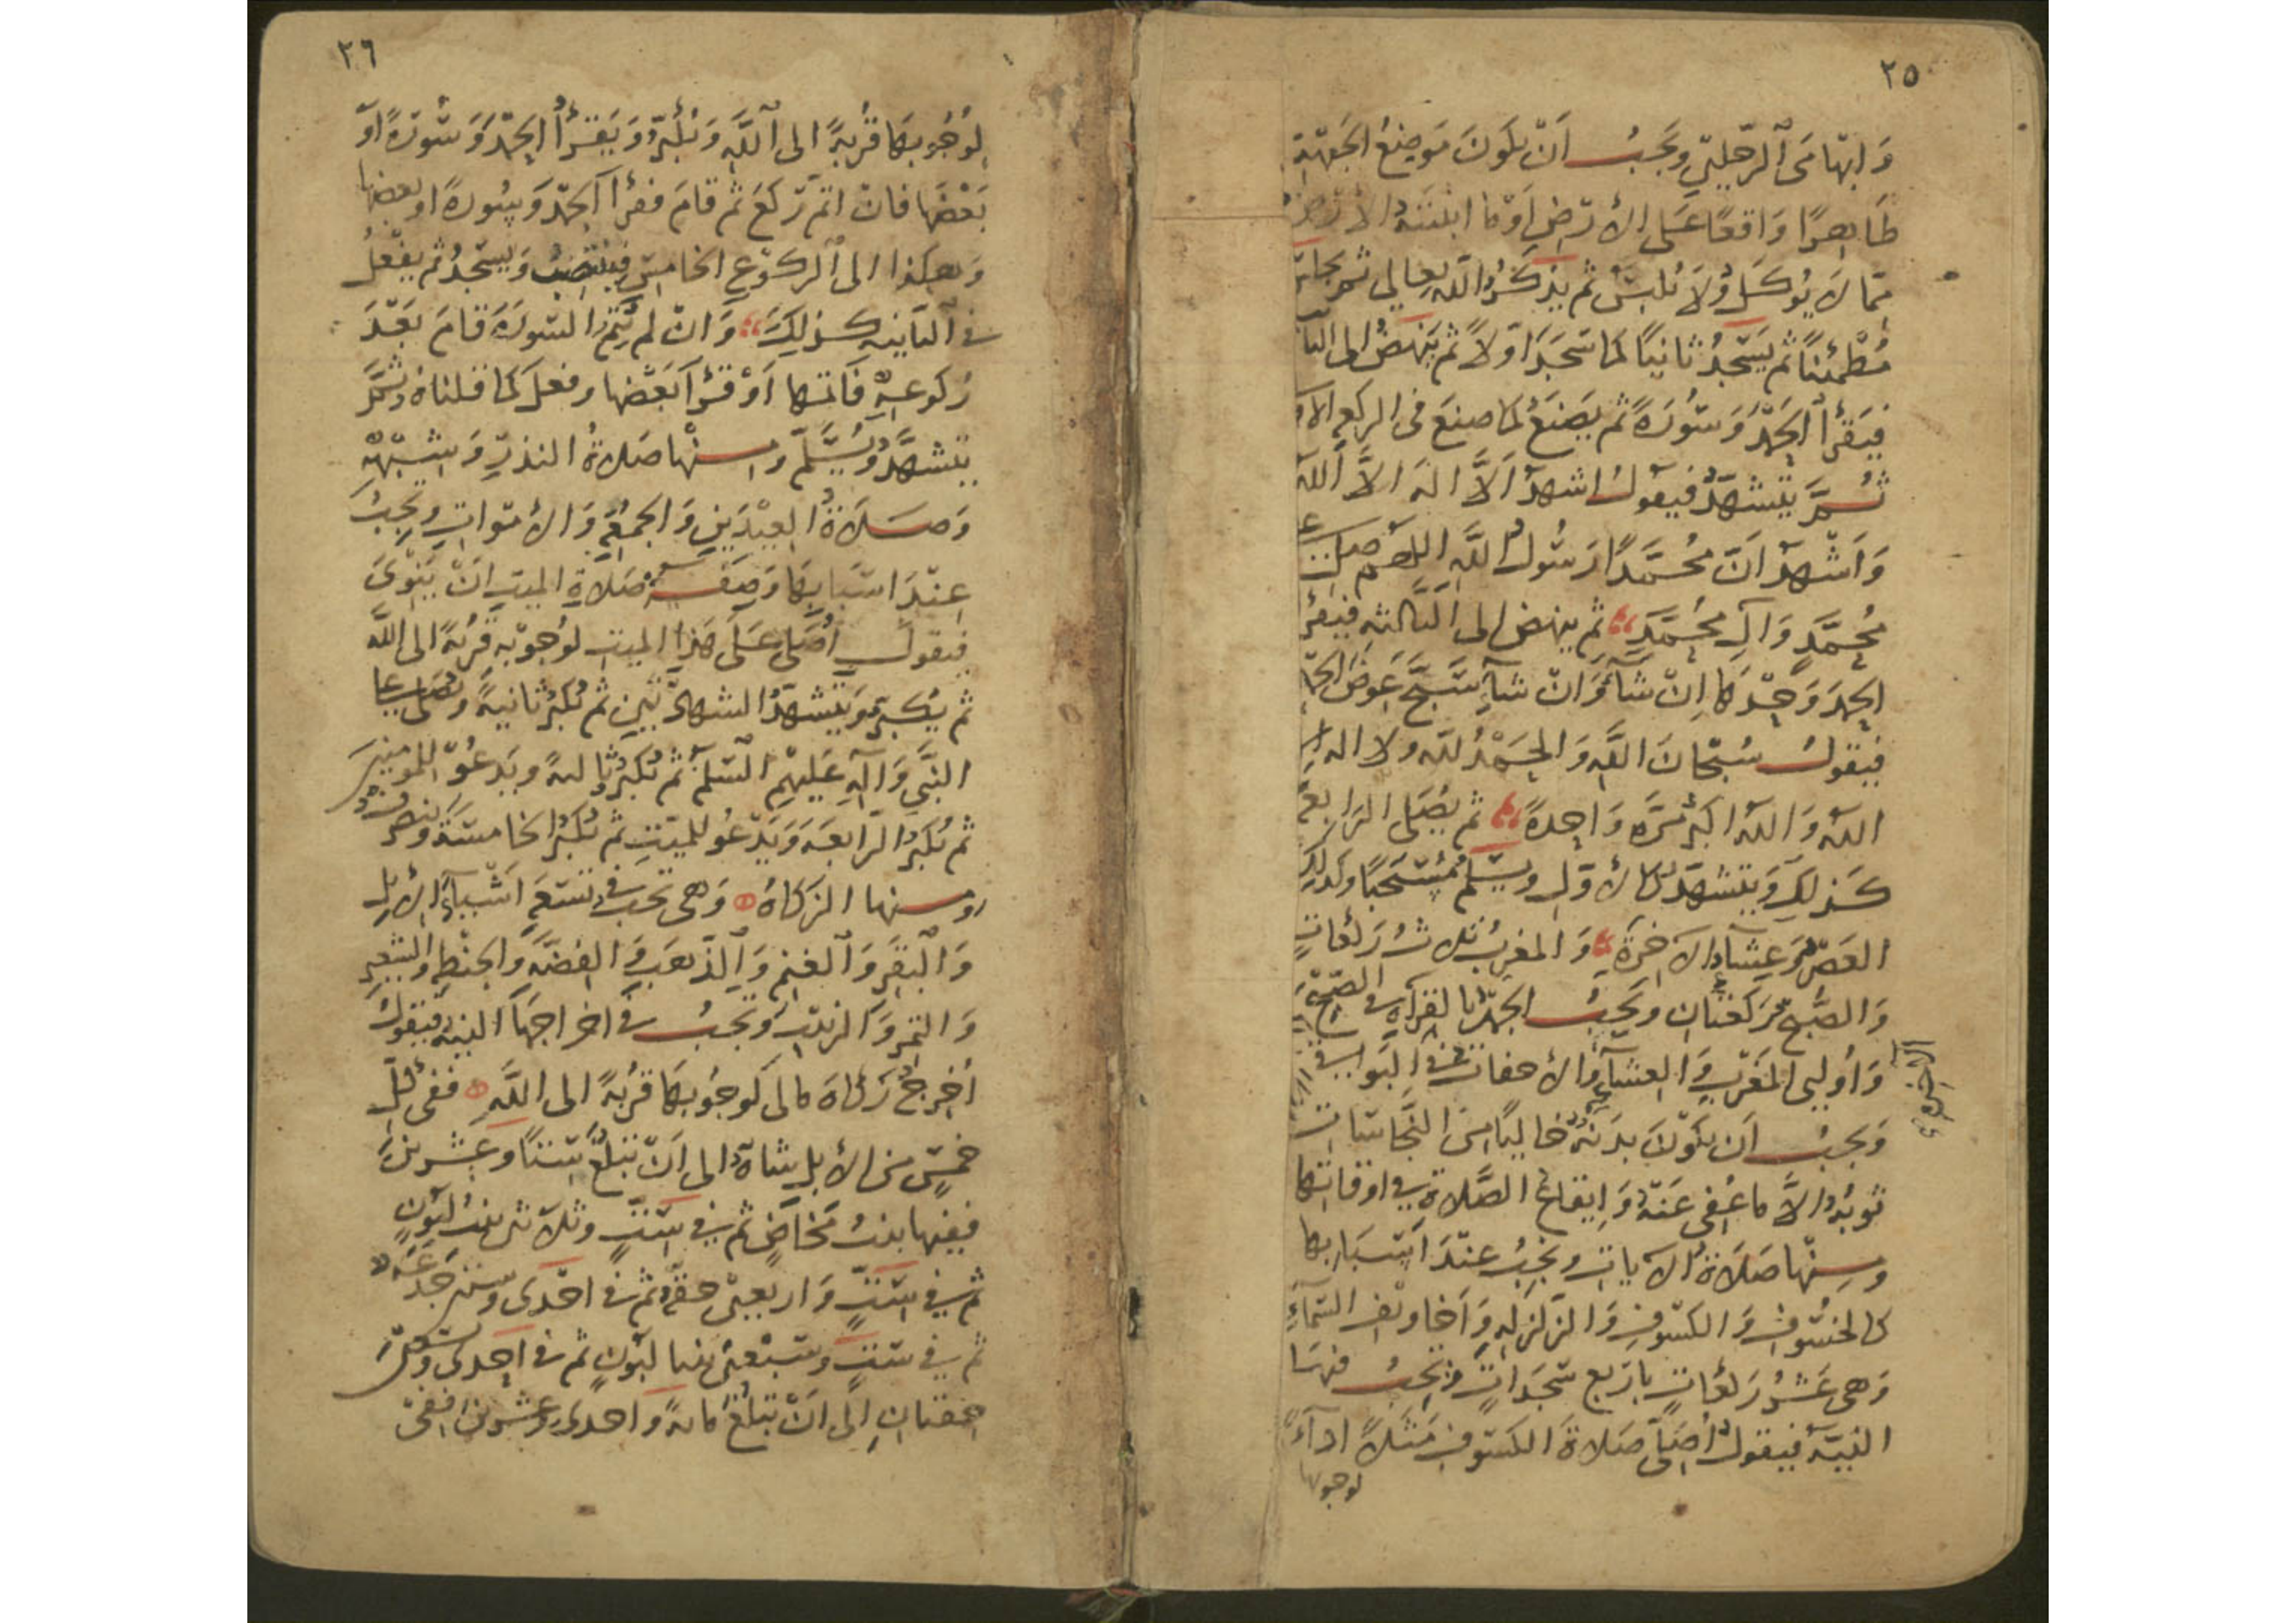 ٢٥
وَابهَامَى الرِّجلينِ ويَجبُ اَنْ يكونَ مَوضِعُ الجَبْهَةِ
طَاهِرًا وَاقعًا عَلى الأرضِ اَوْ ما انبتتهُ الأرضُ
ممّا لاَ يُوكلُ وُلاَ يُلبَسُ ثم يذكرُ اللّه تعالى ثم يجلس
مُطْمئنًا ثم يَسْجدُ ثانيًا كما سَجَدَ اوّلاً ثم ينهَضُ الى
فيَقرأ الحَمْدَ وَسُورَةً ثم يَصنَعُ كما صنعَ فى الركعه
ثُمَّ يتشهّدُ فيقولُ اشهدُ اَلاَّ الهَ الاَّ اللّه
وَاَشْهدُ انَّ مُحَمَّدًا رَسُولُ اللَّهِ اللهم صل على
مُحمَّدٍ وَالِ مُحمَّدٍ ثم ينهض الى الثالثه فيقرأ
الحمدَ وَحْدَهَا اِنْ شآءَ وَانْ شآءَ سَبَّحَ عِوَضَ الحمد
فيقولُ سُبْحَانَ اللَّهِ وَالحَمْدُ للّه ولا اله الا
اللّه وَاللّه اكبرُ مَرَّه وَاحِدةً ثم يُصَلى الرَابعَةَ
كَذلِكَ وَيتشهّدُ كالأوّلِ ويُسَلّمُ مُسْتَحَبًا وكذلك
العَصْرُ وَعِشآءُ الآخِرَةِ وَالمغربُ ثلاثُ رَكعَاتٍ
وَالصُبْحُ رَكعتَانِ ويَجِبُ الجَهْرُ بالقِرآةِ في الصّبْحِ
وَاُوليى المَغْرِبِ وَالعشآءِ وَالأخفاتُ في البَوَاقى
الآخرة
وَيجبُ اَن يكوْنَ بدَنهُ خَاليًا منَ النَّجَاسَاتِ
ثوبُهُ الاَّ ما عُفِى عَنْهُ وَاِيقاعُ الصَّلاةِ في اوقاتها
ومِنْها صَلاَةُ الآياتِ وتجِبُ عِنْدَ اَسْبَابِها
كالخسُوفِ وَالكسُوفِ وَالزّلزلهِ وَاَخاويفِ السّمَآءِ
وَهى عَشْرُ رَكعَاتٍ باَرْبعِ سَجَدَاتٍ وتجِبُ فيهَا
النيّةُ فيقولُ اُصَلّى صَلاةَ الكسُوفِ مَثَلاً ادآءً
لوجوبها
٢٦
لوُجُوبهَا قُربَةً الى اللَّهِ وَيُكَبّرُ وَيَقرَأُ الحَمْدَ وَسُورَةً اوْ
بَعْضَها فانْ اتمّ رَكعَ ثم قامَ فقرأ الحَمْدَ وَسُورةً او بعضها
وَهكذا الى الركوُعِ الخامِسِ فينْتصِبُ وَيسْجُدُ ثم يفْعلُ
في الثانيه كذلِكَ وَانْ لم يُتِمَّ السُورَةَ قامَ بَعْدَ
رُكوعِهِ فَاتمّها اَوْ قرأ بَعْضَها وفعلَ كما قلناهُ ثُمَّ
يتشهَّدُ وَيُسَلّمُ ومِنْها صَلاةُ النذرِ وَشِبْهِهِ
وَصَلاَةُ العِيْدَينِ وَالجمُعَةِ وَالأمْوَاتِ ويجِبُ
عِنْدَ اَسْبَابهَا وَصِفَةُ صَلاةِ الميتِ اَنْ يَنْوِىَ
فيقولُ اُصَلى عَلَى هَذا الميتِ لوُجُوبه قُربَةً الى اللَّه
ثم يُكبِّرُ وَيتشهّدُ الشهادَتينِ ثم يُكبّرُ ثانيةً ويُصَلى على
النبَّى وَآلهِ عَليهِمُ السّلمُ ثم يُكبّرُ ثالثةً ويَدعُو للمومنينَ
ثم يُكبّرُ الرّابعَه وَيَدْعُو للميّتِ ثم يُكبّرُ الخامسَةَ وينصرفُ
ومنها الزَكاةُ وَهى تجبُ في تسْعَةِ اَشْيآءَ الأبلِ
وَالبَقَرِ وَالغنمِ وَالذّهَبِ وَالفِضّهِ وَالحِنْطهِ وَالشّعيرِ
وَالتمرِ وَالزبيبِ وَيجبُ في اخراجِهَا النيةُ فيَقولُ
اُخرِجُ زَكاةَ مالى لوجُوبهَا قُرْبةً الى اللَّهِ ففى كلّ
خَمْسٍ منَ الأبلِ شاةٌ الى اَنْ تبْلُغَ سِتًّا وعِشرينَ
ففيها بنتُ مَخَاضٍ ثم في سِتٍّ وثلاثينَ بنتُ لَبُونٍ
ثم في سِتٍّ وَاربعينَ حقّةٌ ثم في احْدَى وستينَ جَذعَةٌ
ثم في ستٍّ وَسَبْعينَ بنتا لَبُونٍ ثم في اِحدى وَتسْعينَ
حِقتانِ اِلى اَنْ تبلُغَ مائةً وَاحدى وعِشرينَ ففى